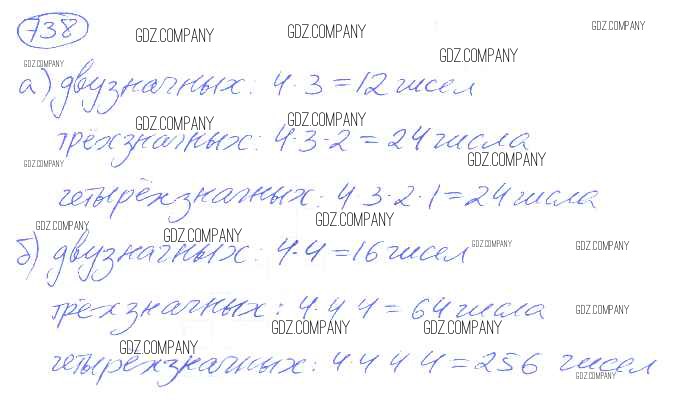 738 GDZ.COMPANY GDZ.COMPANY GDZ.COMPANY
GDZ.COMPANY GDZ.COMPANY
а) двузначных: 4·3=12 чисел
GDZ.COMPANY GDZ.COMPANY
трёхзначных: 4·3·2=24 числа
GDZ.COMPANY GDZ.COMPANY
четырёхзначных: 4 3·2·1=24 числа
GDZ.COMPANY GDZ.COMPANY GDZ.COMPANY
б) двузначных: 4·4=16 чисел GDZ.COMPANY GDZ.COMPANY
трёхзначных: 4·4 4=64 числа GDZ.COMPANY
GDZ.COMPANY GDZ.COMPANY
GDZ.COMPANY
четырёхзначных: 4·4 4 4=256 чисел
GDZ.COMPANY